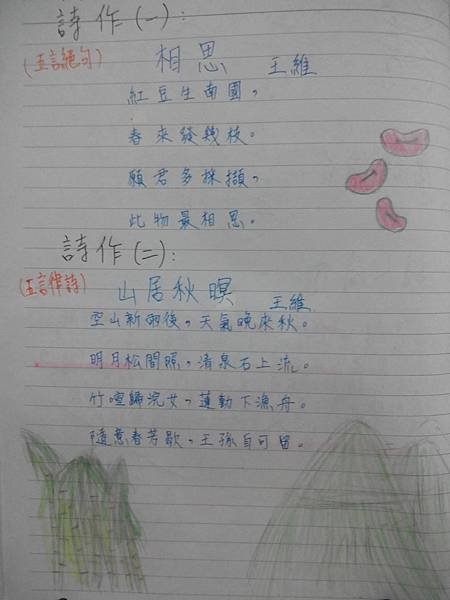 詩作(一):
(五言絕句) 相思 王維
紅豆生南國，
春來發幾枝。
願君多採擷，
此物最相思。
詩作(二):
(五言律詩) 山居秋暝 王維
空山新雨後，天氣晚來秋。
明月松間照，清泉石上流。
竹喧歸浣女，蓮動下漁舟。
隨意春芳歇，王孫自可留。